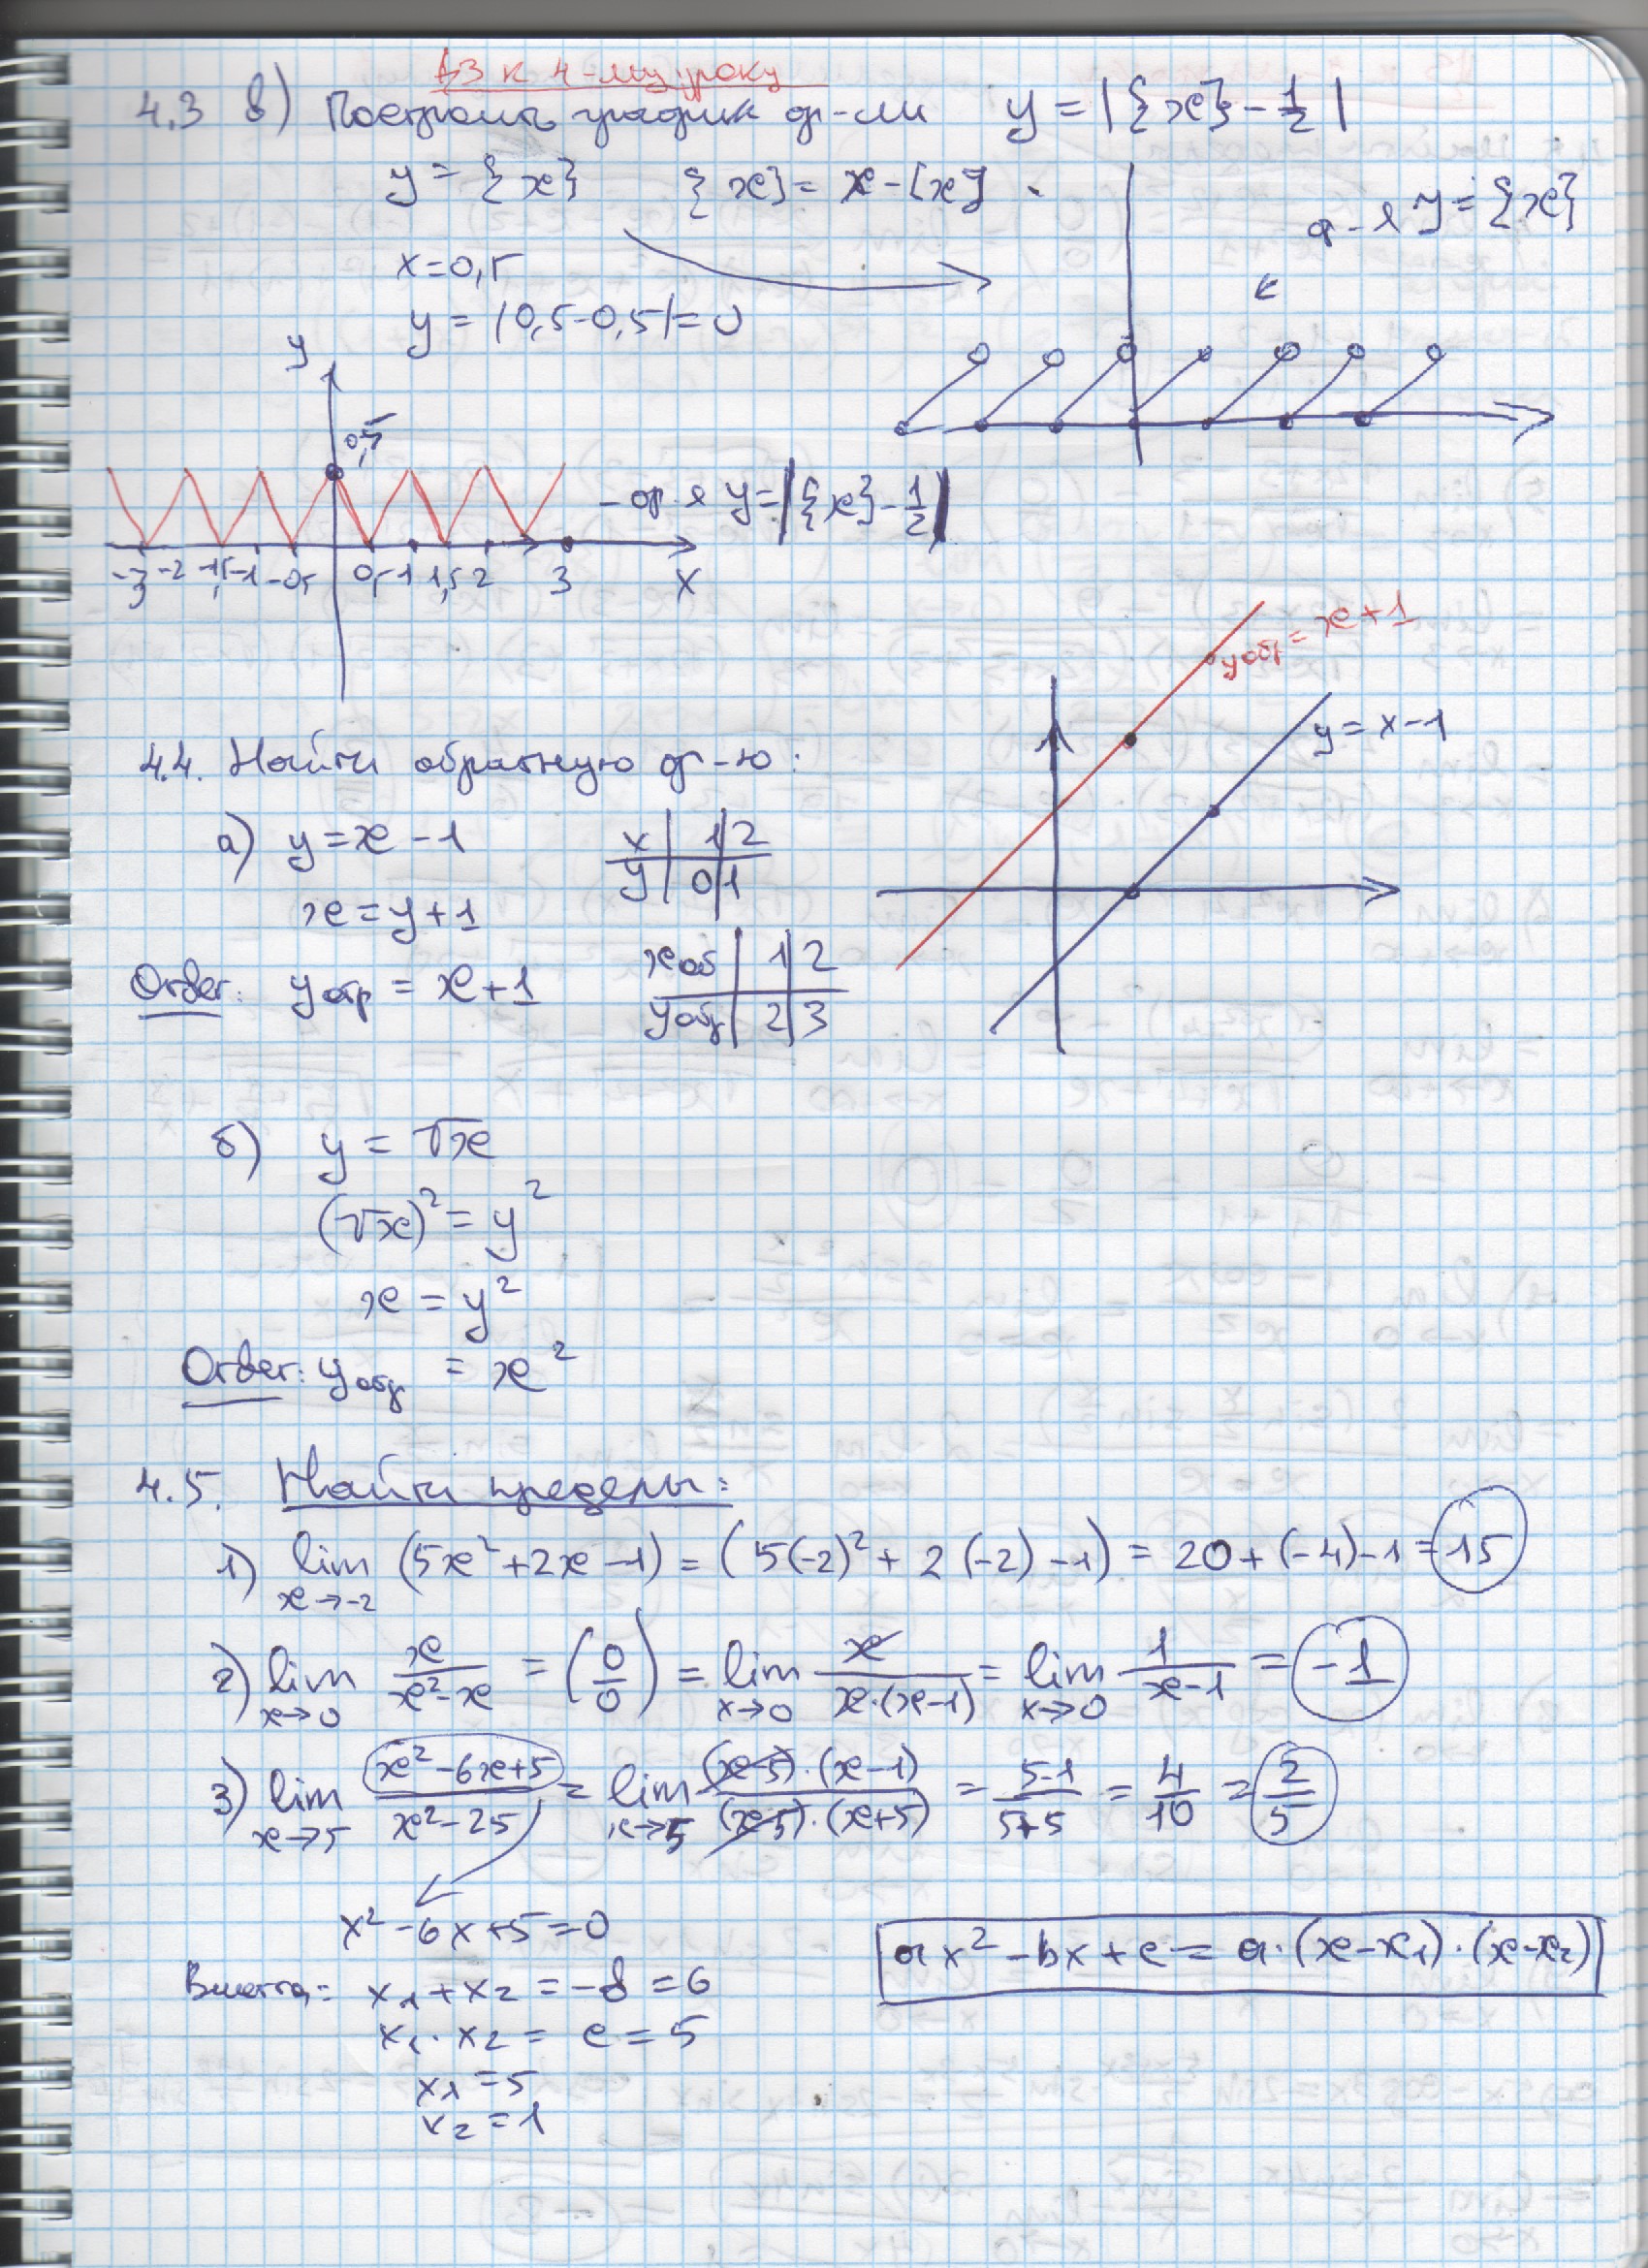 ДЗ к 4-му уроку
4.3 в) Построить график ф-ии y = |{x} - 1/2|
y = {x} {x} = x - [x]
ф-я y = {x}
x = 0,5
y = |0,5 - 0,5| = 0
y
0,5
- ф-я y = |{x} - 1/2|
-3 -2 -1,5 -1 -0,5 0,5 1 1,5 2 3 x
yобр = x + 1
y = x - 1
4.4. Найти обратную ф-ю:
а) y = x - 1
x | 1 | 2
y | 0 | 1
x = y + 1
Ответ: yобр = x + 1
xоб | 1 | 2
yобр | 2 | 3
б) y = √x
(√x)² = y²
x = y²
Ответ: yобр = x²
4.5. Найти пределы:
1) lim x→-2 (5x² + 2x - 1) = (5(-2)² + 2(-2) - 1) = 20 + (-4) - 1 = 15
2) lim x→0 x/(x² - x) = (0/0) = lim x→0 x/(x·(x-1)) = lim x→0 1/(x-1) = -1
3) lim x→5 (x² - 6x + 5)/(x² - 25) = lim x→5 ((x-5)·(x-1))/((x-5)·(x+5)) = (5-1)/(5+5) = 4/10 = 2/5
x² - 6x + 5 = 0
ax² - bx + c = a·(x - x₁)·(x - x₂)
Виетта: x₁ + x₂ = -b = 6
x₁ · x₂ = c = 5
x₁ = 5
x₂ = 1